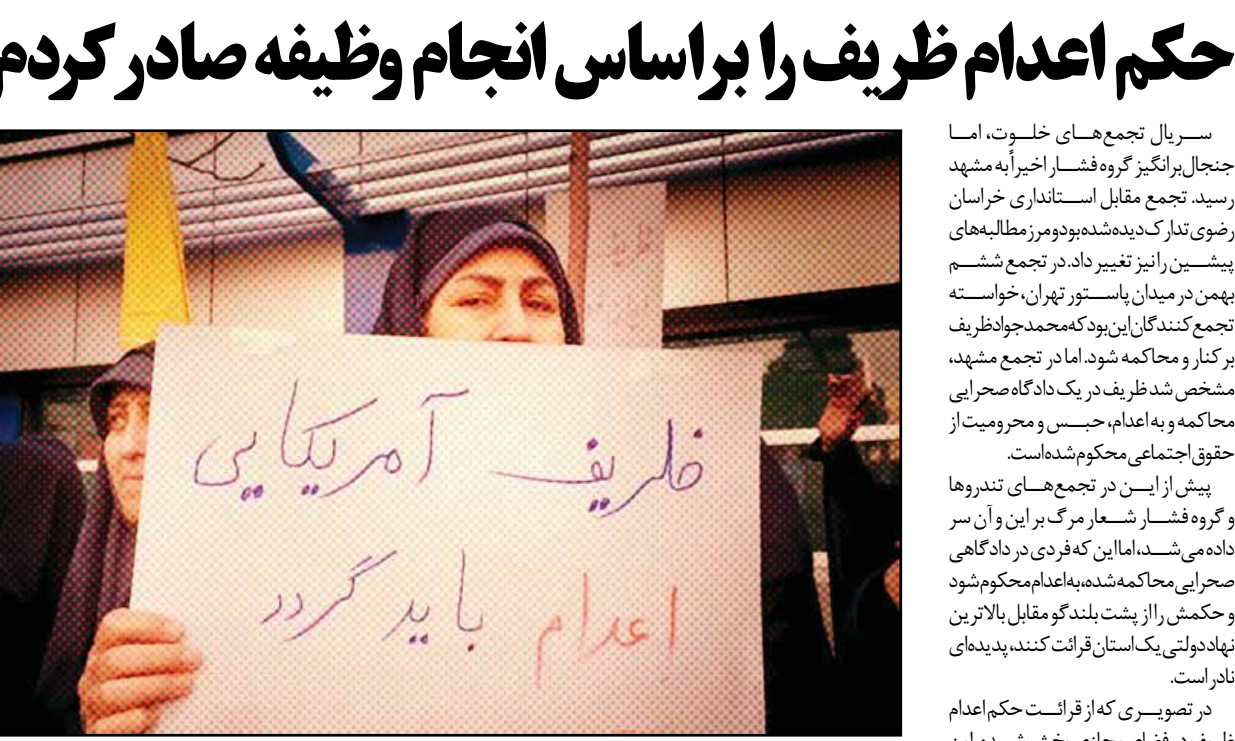 حکم اعدام ظریف را براساس انجام وظیفه صادر کردم
سریال تجمع‌های خلوت، اما
جنجال‌برانگیز گروه فشار اخیراً به مشهد
رسید. تجمع مقابل استانداری خراسان
رضوی تدارک دیده شده بود و مرز مطالبه‌های
پیشین را نیز تغییر داد. در تجمع ششم
بهمن در میدان پاستور تهران، خواسته
تجمع‌کنندگان این بود که محمدجواد ظریف
برکنار و محاکمه شود. اما در تجمع مشهد،
مشخص شد ظریف در یک دادگاه صحرایی
محاکمه و به اعدام، حبس و محرومیت از
حقوق اجتماعی محکوم شده است.
پیش از این در تجمع‌های تندروها
و گروه فشار شعار مرگ بر این و آن سر
داده می‌شد، اما این که فردی در دادگاهی
صحرایی محاکمه شده، به اعدام محکوم شود
و حکمش را از پشت بلندگو مقابل بالاترین
نهاد دولتی یک استان قرائت کنند، پدیده‌ای
نادر است.
در تصویری که از قرائت حکم اعدام
ظریف آمریکایی
اعدام باید گردد